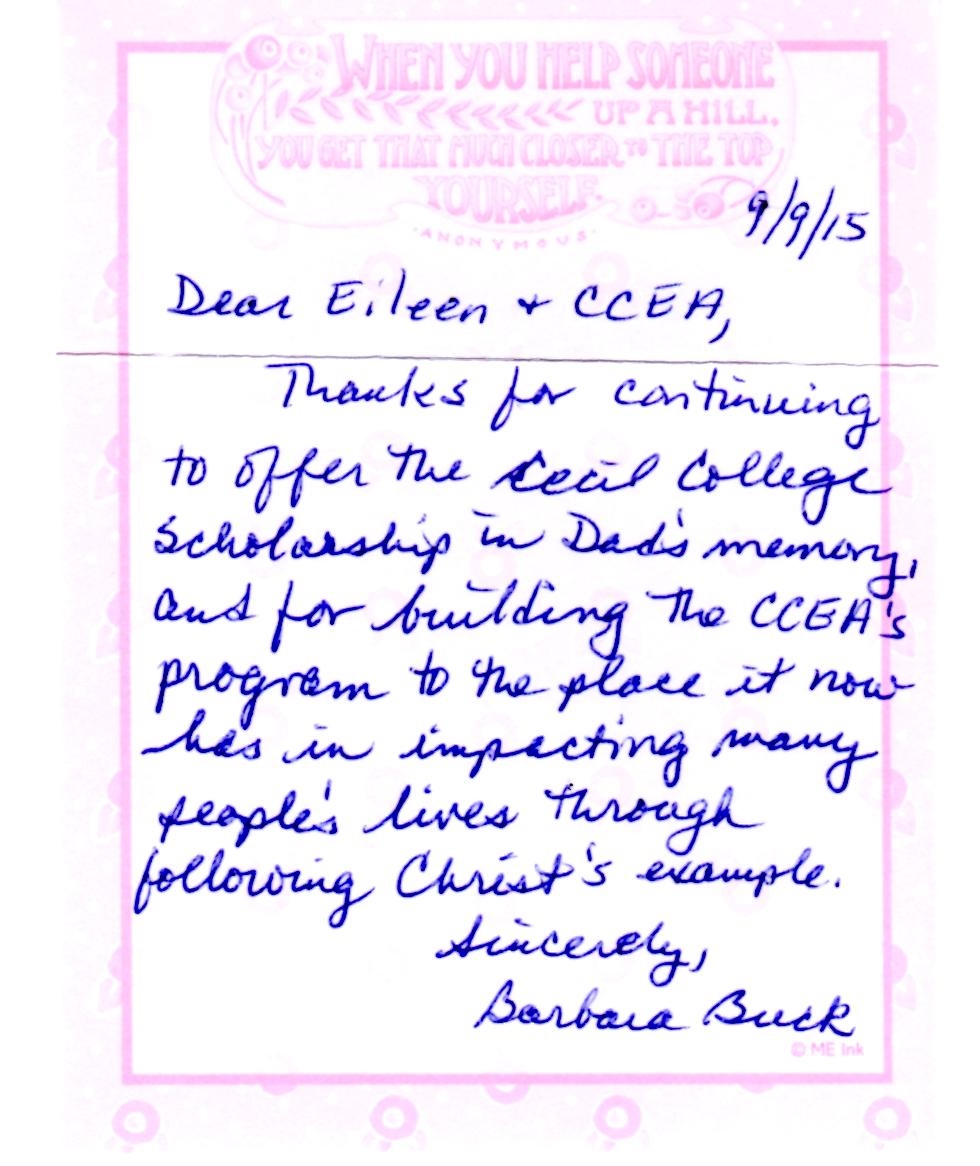 WHEN YOU HELP SOMEONE
UP A HILL,
YOU GET THAT MUCH CLOSER TO THE TOP
YOURSELF.
·ANONYMOUS·
9/9/15
Dear Eileen + CCEA,
Thanks for continuing
to offer the Cecil College
Scholarship in Dad's memory,
and for building the CCEA's
program to the place it now
has in impacting many
people's lives through
following Christ's example.
Sincerely,
Barbara Buck
© ME Ink